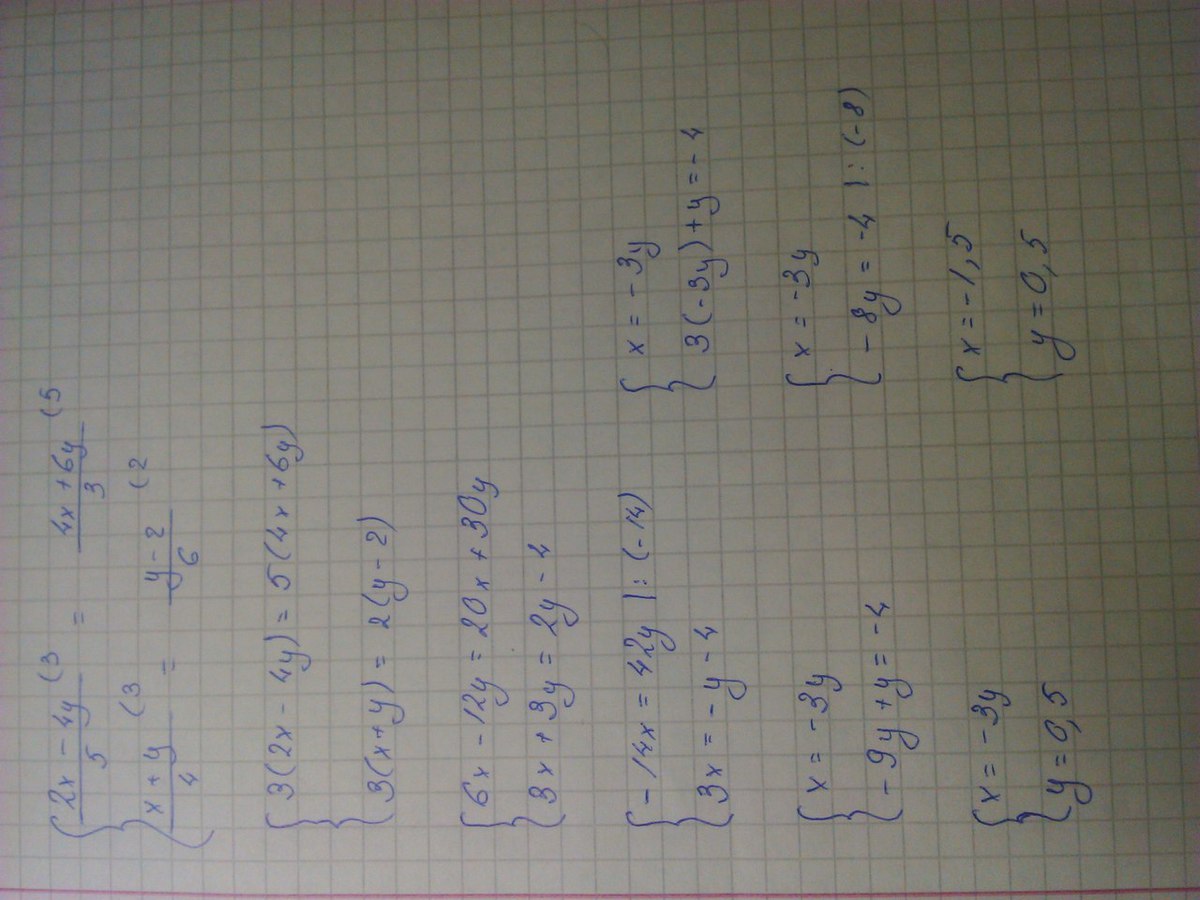 { (2x - 4y)/5 (3 = (4x + 6y)/3 (5
(x + y)/4 (3 = (y - 2)/6 (2
{ 3(2x - 4y) = 5(4x + 6y)
3(x + y) = 2(y - 2)
{ 6x - 12y = 20x + 30y
3x + 3y = 2y - 4
{ -14x = 42y |: (-14)
3x = -y - 4
{ x = -3y
3(-3y) + y = -4
{ x = -3y
-9y + y = -4
{ x = -3y
-8y = -4 |: (-8)
{ x = -3y
y = 0,5
{ x = -1,5
y = 0,5